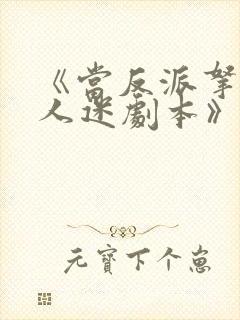 《當反派拏
人迷劇本》
元寶下个崽